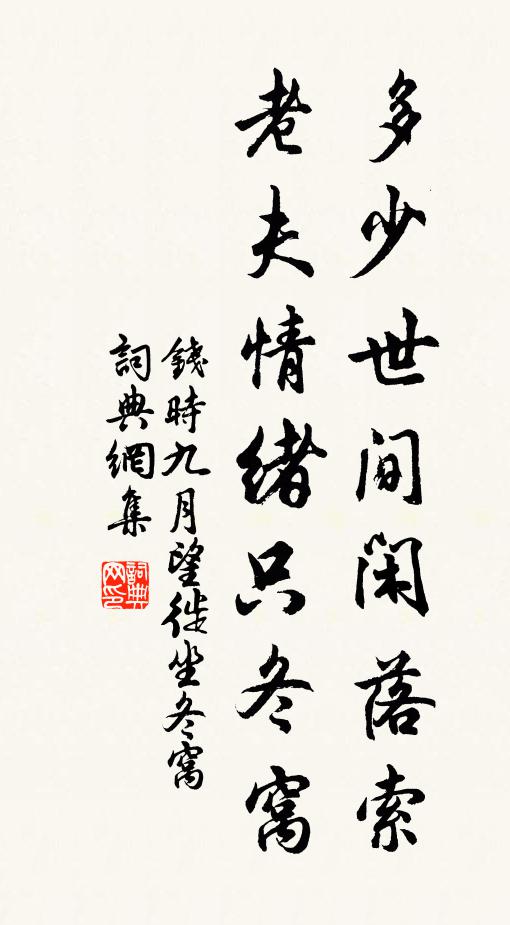 多少世間閑落索
老夫情緒只冬窩
錢時九月望徙坐冬窩
詞典網集
詞典网印